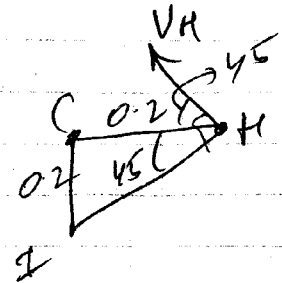 VH
45
C 0.24 H
0.2 45
I